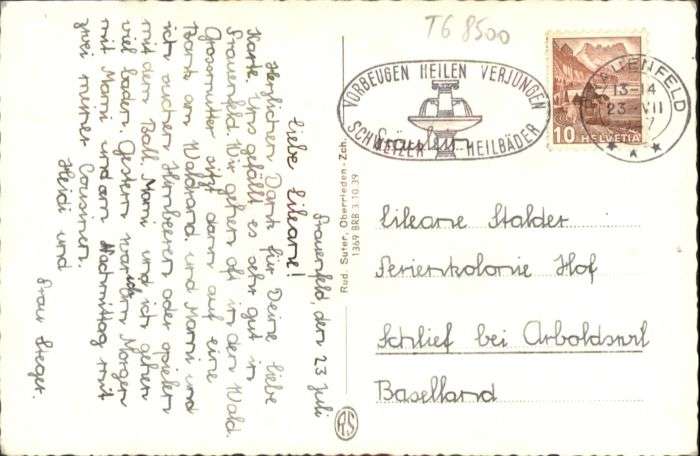 T6 8500
VORBEUGEN HEILEN VERJÜNGEN
SCHWEIZER HEILBÄDER
FRAUENFELD
13-14
23 VII
10 HELVETIA
Frauenfeld, den 23 Juli
Liebe Lileane!
Herzlichen Dank für Deine liebe
Karte. Uns gefällt es sehr gut in
Frauenfeld. Wir gehen oft in den Wald.
Grossmutter sitzt dann auf eine
Bank am Waldrand und Mami und
ich suchen Himbeeren oder spielen
mit dem Ball. Mami und ich gehen
viel baden. Gestern war ich am Morgen
mit Mami und am Nachmittag mit
zwei meiner Cousinen.
Heidi und
Frau Steger.
Rud. Suter, Oberrieden-Zch.
1369 BRB 3.10.39
RS
Fräulein
Lileane Stalder
Ferienkolonie Hof
Schlief bei Arboldswil
Baselland